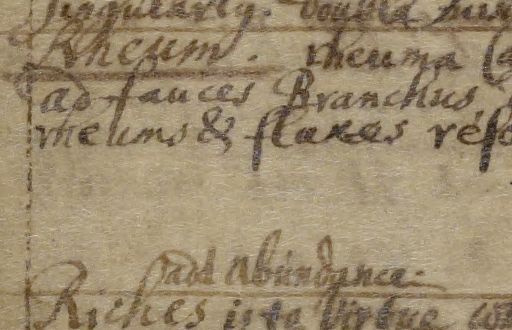 singularly. double
Rheum. rheuma
ad fauces Branchus
rheums & fluxes
add Abundance.
Riches is to Virtue